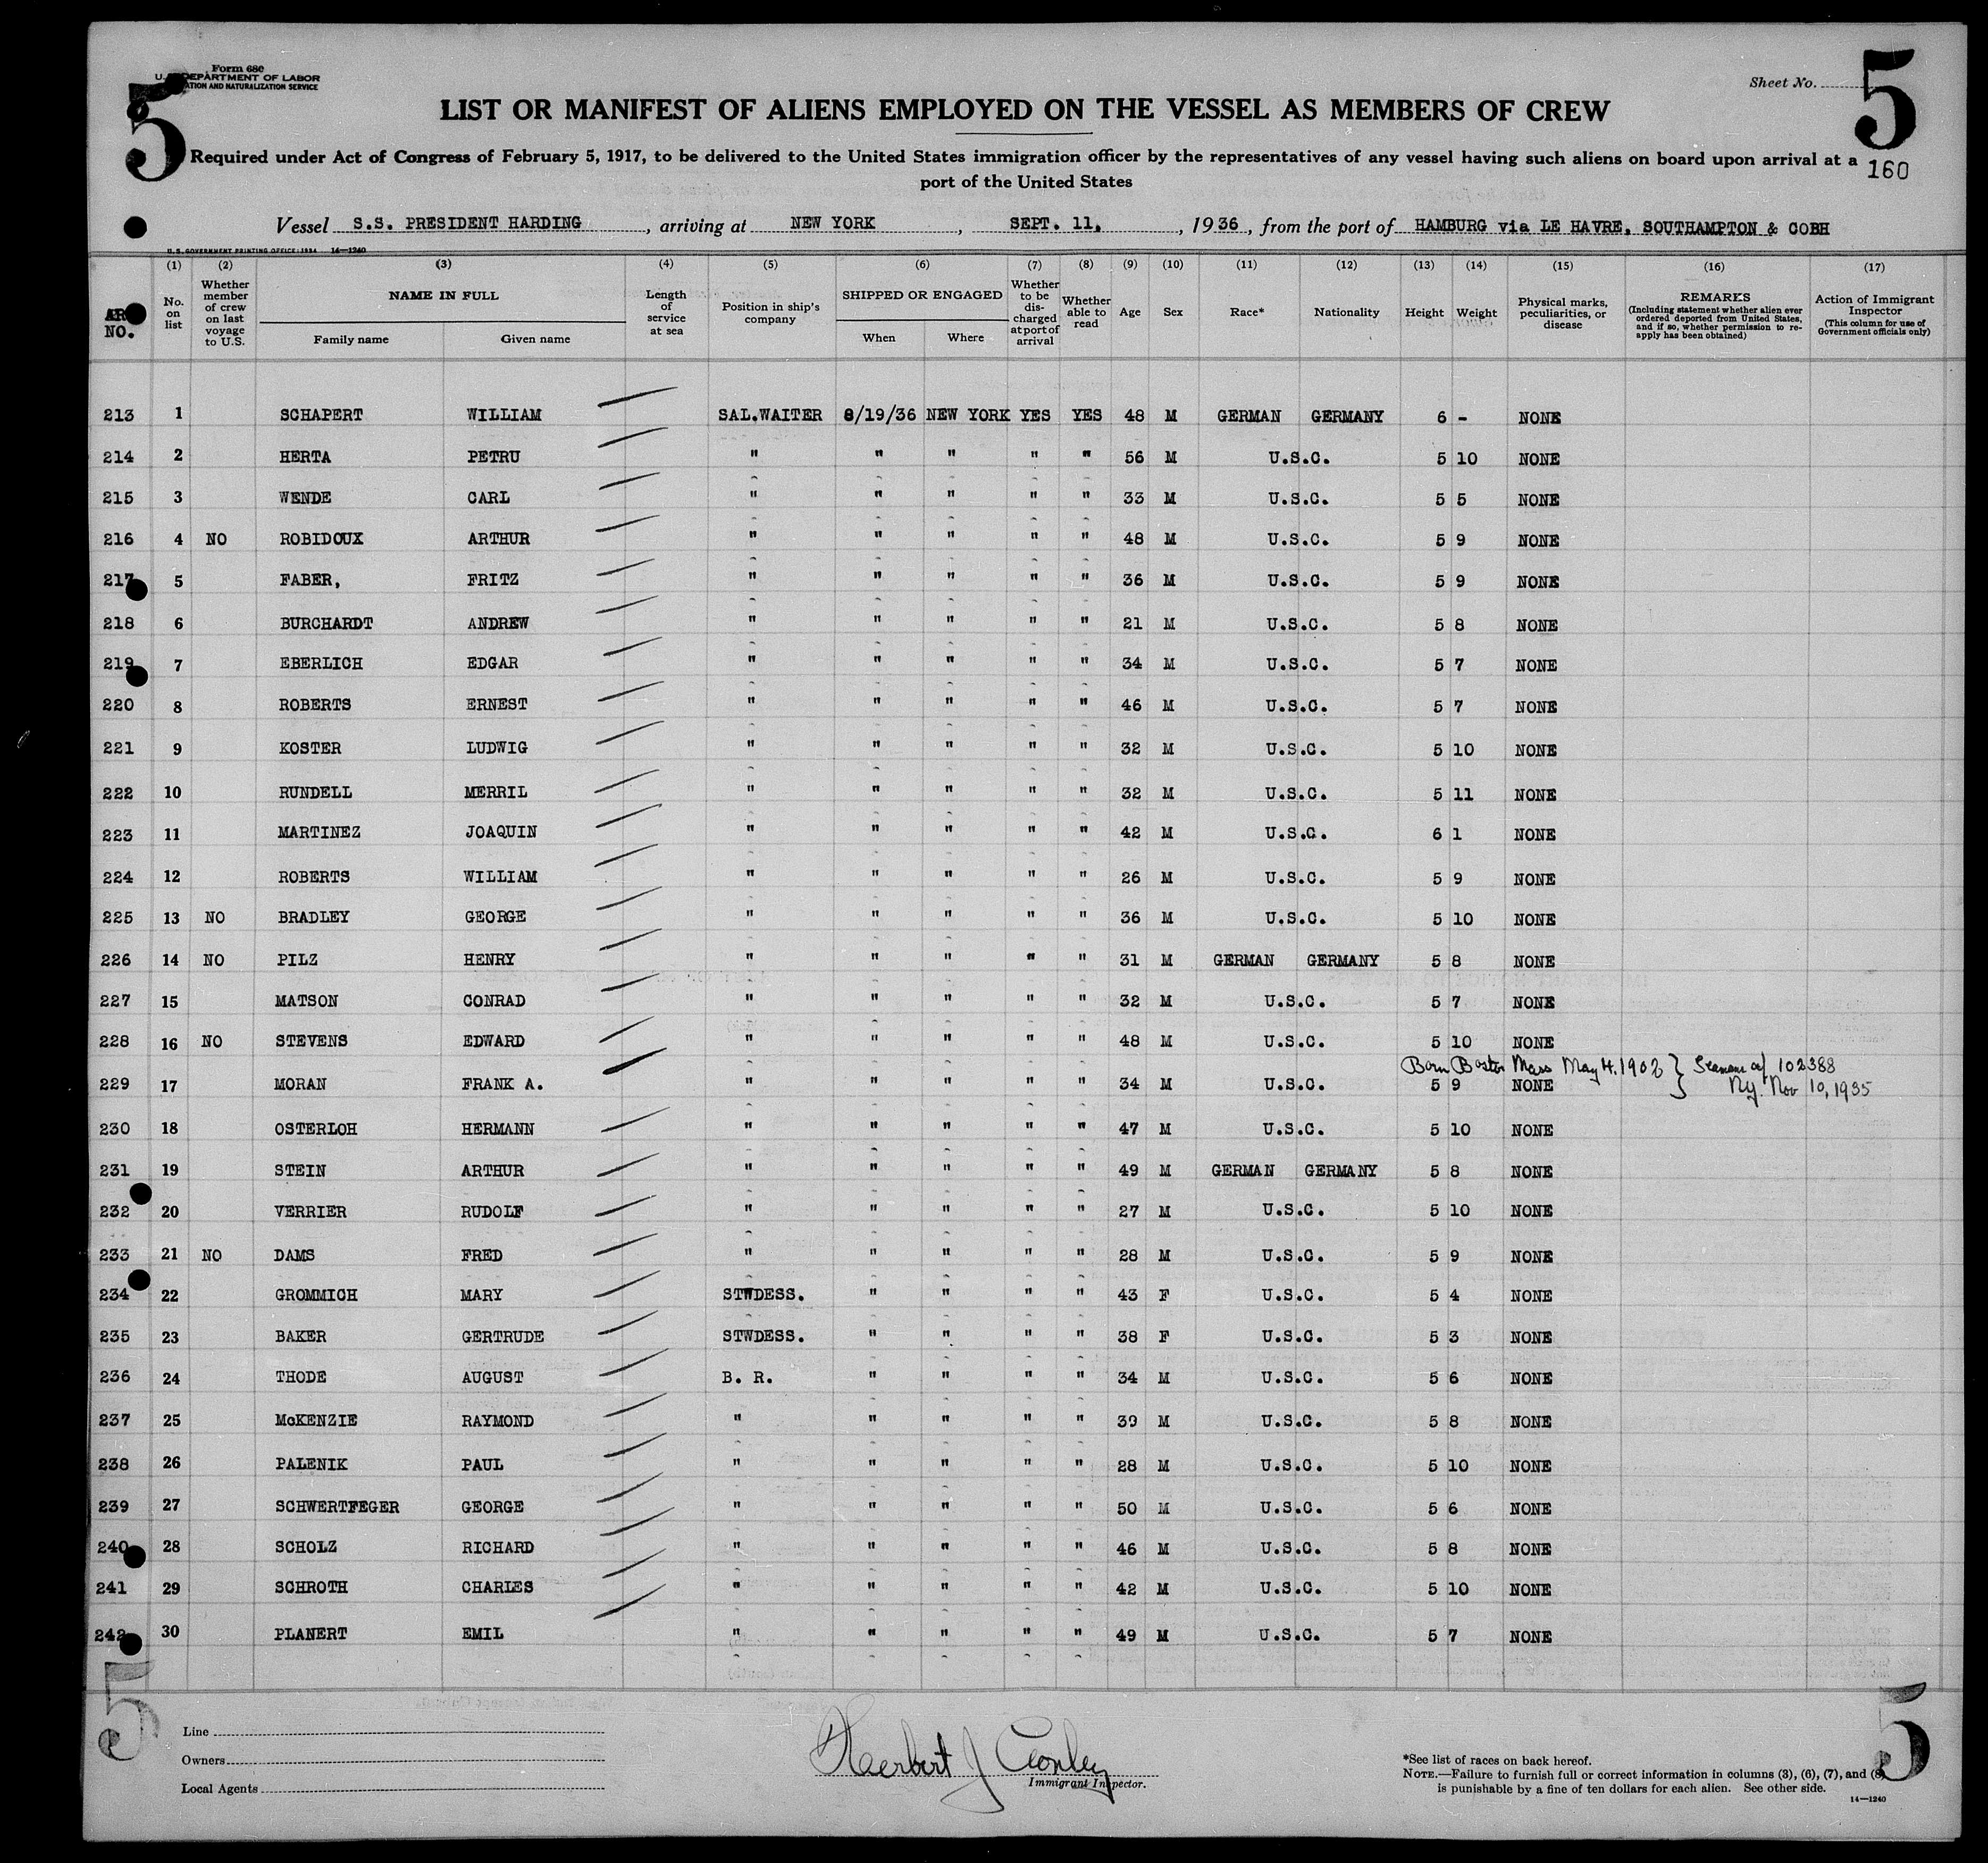 Form 680
U. S. DEPARTMENT OF LABOR
IMMIGRATION AND NATURALIZATION SERVICE
Sheet No.
5
5
160
LIST OR MANIFEST OF ALIENS EMPLOYED ON THE VESSEL AS MEMBERS OF CREW
Required under Act of Congress of February 5, 1917, to be delivered to the United States immigration officer by the representatives of any vessel having such aliens on board upon arrival at a
port of the United States
Vessel S.S. PRESIDENT HARDING, arriving at NEW YORK, SEPT. 11, 1936, from the port of HAMBURG via LE HAVRE, SOUTHAMPTON & COBH
U.S. GOVERNMENT PRINTING OFFICE: 1934 14—1240
(1) (2) (3) (4) (5) (6) (7) (8) (9) (10) (11) (12) (13) (14) (15) (16) (17)
NO.
No. on list
Whether member of crew on last voyage to U.S.
NAME IN FULL
Family name
Given name
Length of service at sea
Position in ship's company
SHIPPED OR ENGAGED
When
Where
Whether to be discharged at port of arrival
Whether able to read
Age
Sex
Race*
Nationality
Height
Weight
Physical marks, peculiarities, or disease
REMARKS
(Including statement whether alien ever ordered deported from United States, and if so, whether permission to reapply has been obtained)
Action of Immigrant Inspector
(This column for use of Government officials only)
213 1 SCHAPERT WILLIAM SAL.WAITER 8/19/36 NEW YORK YES YES 48 M GERMAN GERMANY 6 - NONE
214 2 HERTA PETRU " " " " " 56 M U.S.C. 5 10 NONE
215 3 WENDE CARL " " " " " 33 M U.S.C. 5 5 NONE
216 4 NO ROBIDOUX ARTHUR " " " " " 48 M U.S.C. 5 9 NONE
217 5 FABER, FRITZ " " " " " 36 M U.S.C. 5 9 NONE
218 6 BURCHARDT ANDREW " " " " " 21 M U.S.C. 5 8 NONE
219 7 EBERLICH EDGAR " " " " " 34 M U.S.C. 5 7 NONE
220 8 ROBERTS ERNEST " " " " " 46 M U.S.C. 5 7 NONE
221 9 KOSTER LUDWIG " " " " " 32 M U.S.C. 5 10 NONE
222 10 RUNDELL MERRIL " " " " " 32 M U.S.C. 5 11 NONE
223 11 MARTINEZ JOAQUIN " " " " " 42 M U.S.C. 6 1 NONE
224 12 ROBERTS WILLIAM " " " " " 26 M U.S.C. 5 9 NONE
225 13 NO BRADLEY GEORGE " " " " " 36 M U.S.C. 5 10 NONE
226 14 NO PILZ HENRY " " " " " 31 M GERMAN GERMANY 5 8 NONE
227 15 MATSON CONRAD " " " " " 32 M U.S.C. 5 7 NONE
228 16 NO STEVENS EDWARD " " " " " 48 M U.S.C. 5 10 NONE
Born Boston Mass May 4, 1902 } Seamans 102388
229 17 MORAN FRANK A. " " " " " 34 M U.S.C. 5 9 NONE Ny. Nov 10, 1935
230 18 OSTERLOH HERMANN " " " " " 47 M U.S.C. 5 10 NONE
231 19 STEIN ARTHUR " " " " " 49 M GERMAN GERMANY 5 8 NONE
232 20 VERRIER RUDOLF " " " " " 27 M U.S.C. 5 10 NONE
233 21 NO DAMS FRED " " " " " 28 M U.S.C. 5 9 NONE
234 22 GROMMICH MARY STWDESS. " " " " 43 F U.S.C. 5 4 NONE
235 23 BAKER GERTRUDE STWDESS. " " " " 38 F U.S.C. 5 3 NONE
236 24 THODE AUGUST B. R. " " " " 34 M U.S.C. 5 6 NONE
237 25 McKENZIE RAYMOND " " " " " 39 M U.S.C. 5 8 NONE
238 26 PALENIK PAUL " " " " " 28 M U.S.C. 5 10 NONE
239 27 SCHWERTFEGER GEORGE " " " " " 50 M U.S.C. 5 6 NONE
240 28 SCHOLZ RICHARD " " " " " 46 M U.S.C. 5 8 NONE
241 29 SCHROTH CHARLES " " " " " 42 M U.S.C. 5 10 NONE
242 30 PLANERT EMIL " " " " " 49 M U.S.C. 5 7 NONE
5
5
Line
Owners
Local Agents
Herbert J Conley
Immigrant Inspector.
*See list of races on back hereof.
NOTE.—Failure to furnish full or correct information in columns (3), (6), (7), and (8)
is punishable by a fine of ten dollars for each alien. See other side.
14—1240